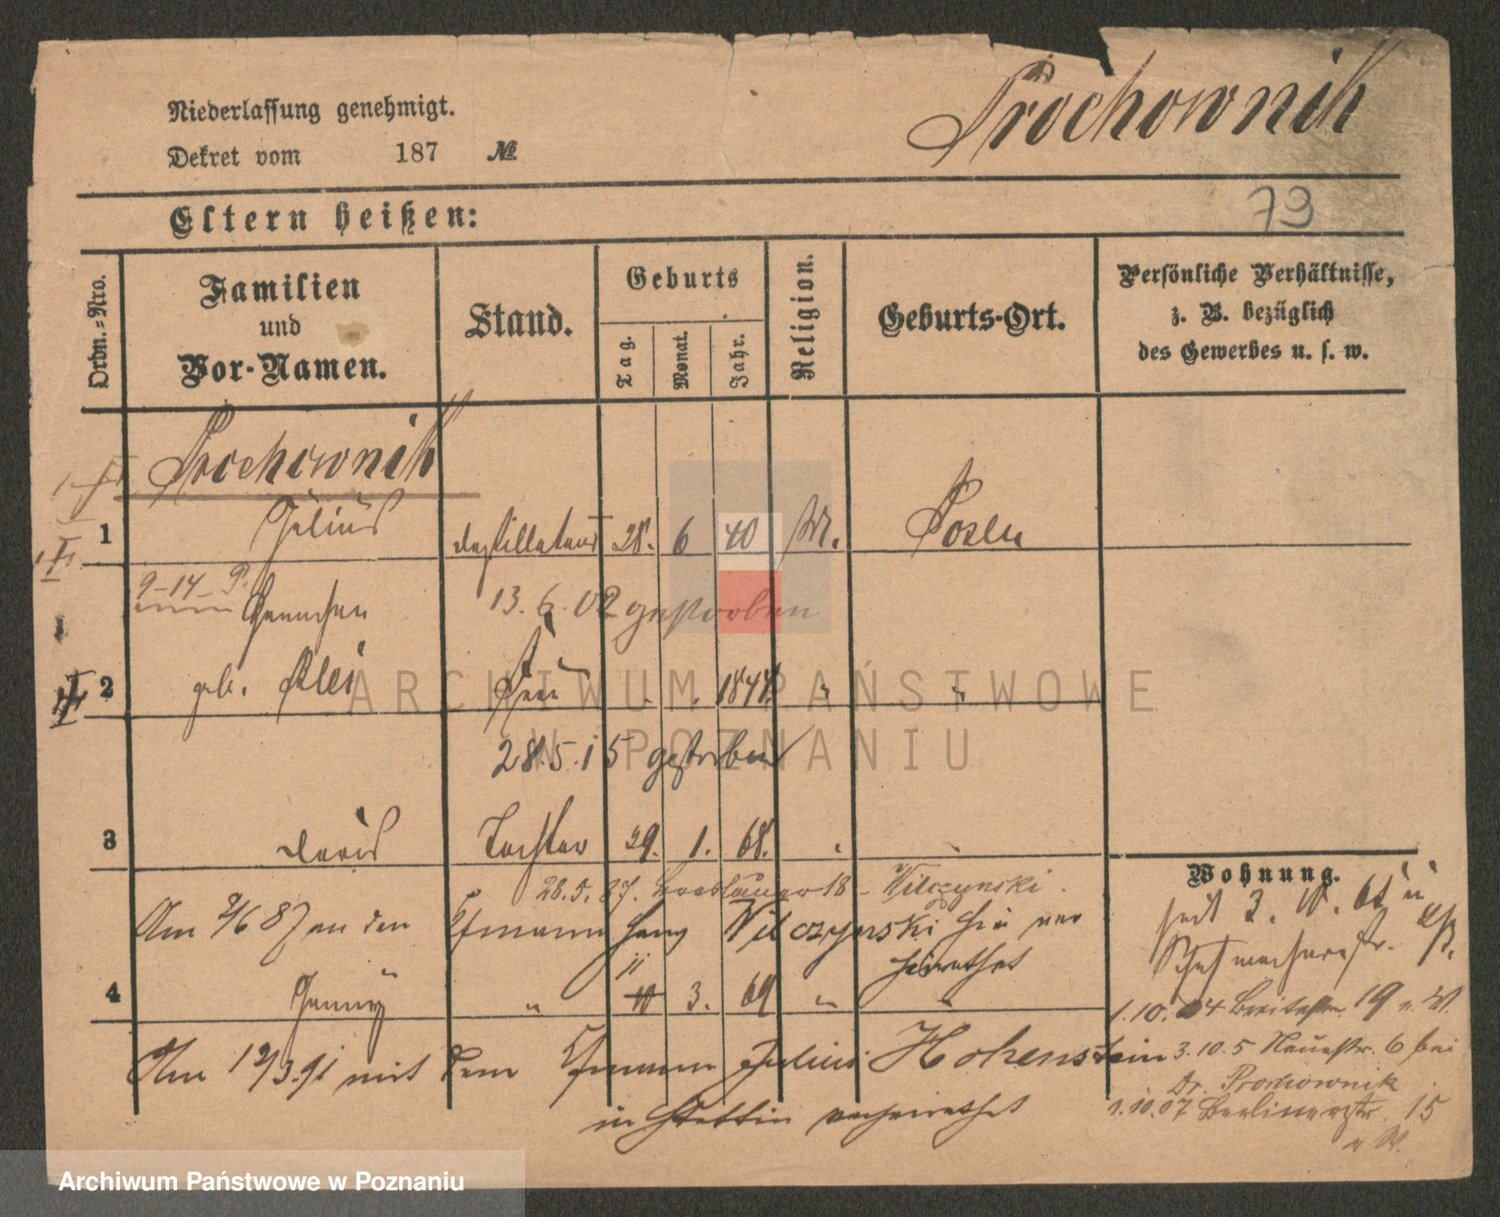 Prochownik
Niederlassung genehmigt.
Dekret vom 187 №
79
Eltern heißen:
Ordn.=Nro.
Familien
und
Vor-Namen.
Stand.
Geburts
Tag.
Monat.
Jahr.
Religion.
Geburts-Ort.
Persönliche Verhältnisse,
z. B. bezüglich
des Gewerbes u. s. w.
Prochownik
1 Julius Destillateur 28. 6 40 M. Posen
9-14-P.
Hannchen 13.6.02 gestorben
2 geb. Frau 1844 " "
28.5.15 gestorben
3 Doris Tochter 29. 1. 68.
28.5.87. Breslauer 18 - Wilczynski.
Am 2/6 87 an den Kfmann Wilczynski hier ver
heirathet
11
4 Jenny " 10 3. 69 " "
Am 12/3.91 mit dem Kfmann Julius Hohenstein
in Stettin verheirathet
Wohnung.
seit 3.
1.10.04 Breitestr. 19 n. W.
3.10.5 Neuestr. 6 bei
Dr. Prochownik
1.10.07 Berlinerstr. 15
n. W.
ARCHIWUM PAŃSTWOWE
W POZNANIU
Archiwum Państwowe w Poznaniu